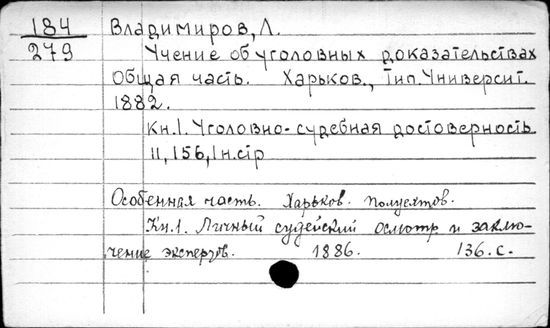 184 Владимиров, Л.
279 Учение об уголовных доказательствах
Общая часть. Харьков., Тип. Университ.
1882.
Кн.1. Уголовно-судебная достоверность
II, 156, 1н.стр
Особенная часть. Харьков. Полуехтов.
Кн.1. Личный судейский осмотр и заклю-
чение экспертов. 1886. 136.с.